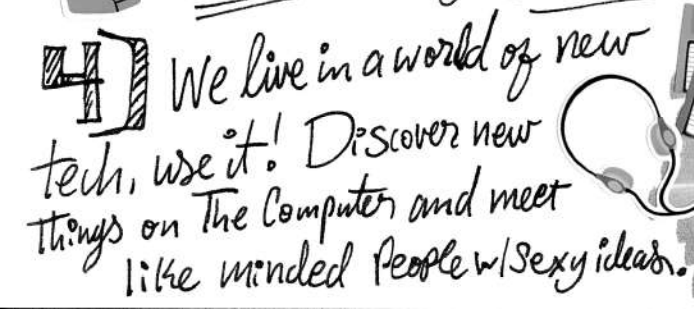 4) We live in a world of new
tech, use it! Discover new
things on The Computer and meet
like minded People w/ sexy ideas.